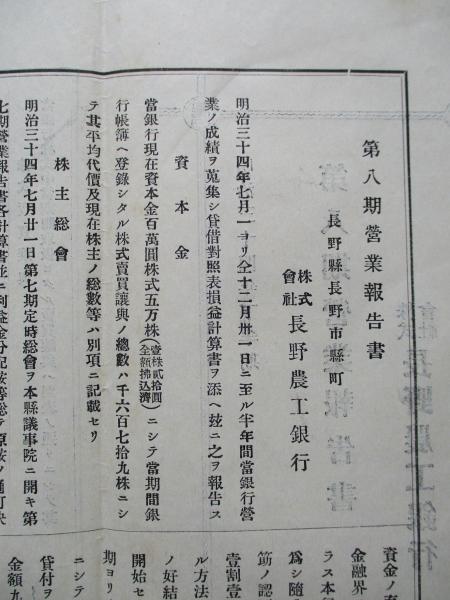 第八期營業報告書
長野縣長野市縣町
株式會社長野農工銀行
明治三十四年七月一日ヨリ仝十二月卅一日ニ至ル半年間當銀行營
業ノ成績ヲ蒐集シ貸借對照表損益計算書ヲ添ヘ玆ニ之ヲ報告ス
資本金
當銀行現在資本金百萬圓株式五万株(壹株貳拾圓全額拂込濟)ニシテ當期間銀
行帳簿ヘ登錄シタル株式賣買讓與ノ總數ハ千六百七拾九株ニシ
テ其平均代價及現在株主ノ総數等ハ別項ニ記載セリ
株主総會
明治三十四年七月廿一日第七期定時総會ヲ本縣議事院ニ開キ第
七期營業報告書各計算書並ニ利益金分配案等総テ原案ノ通可決
資金ノ
金融界
ラス本
爲シ隨
筋ノ認
壹割壹
ル方法
ノ好結
開始セ
期ヨリ
ニシテ
貸付ヲ
金額九